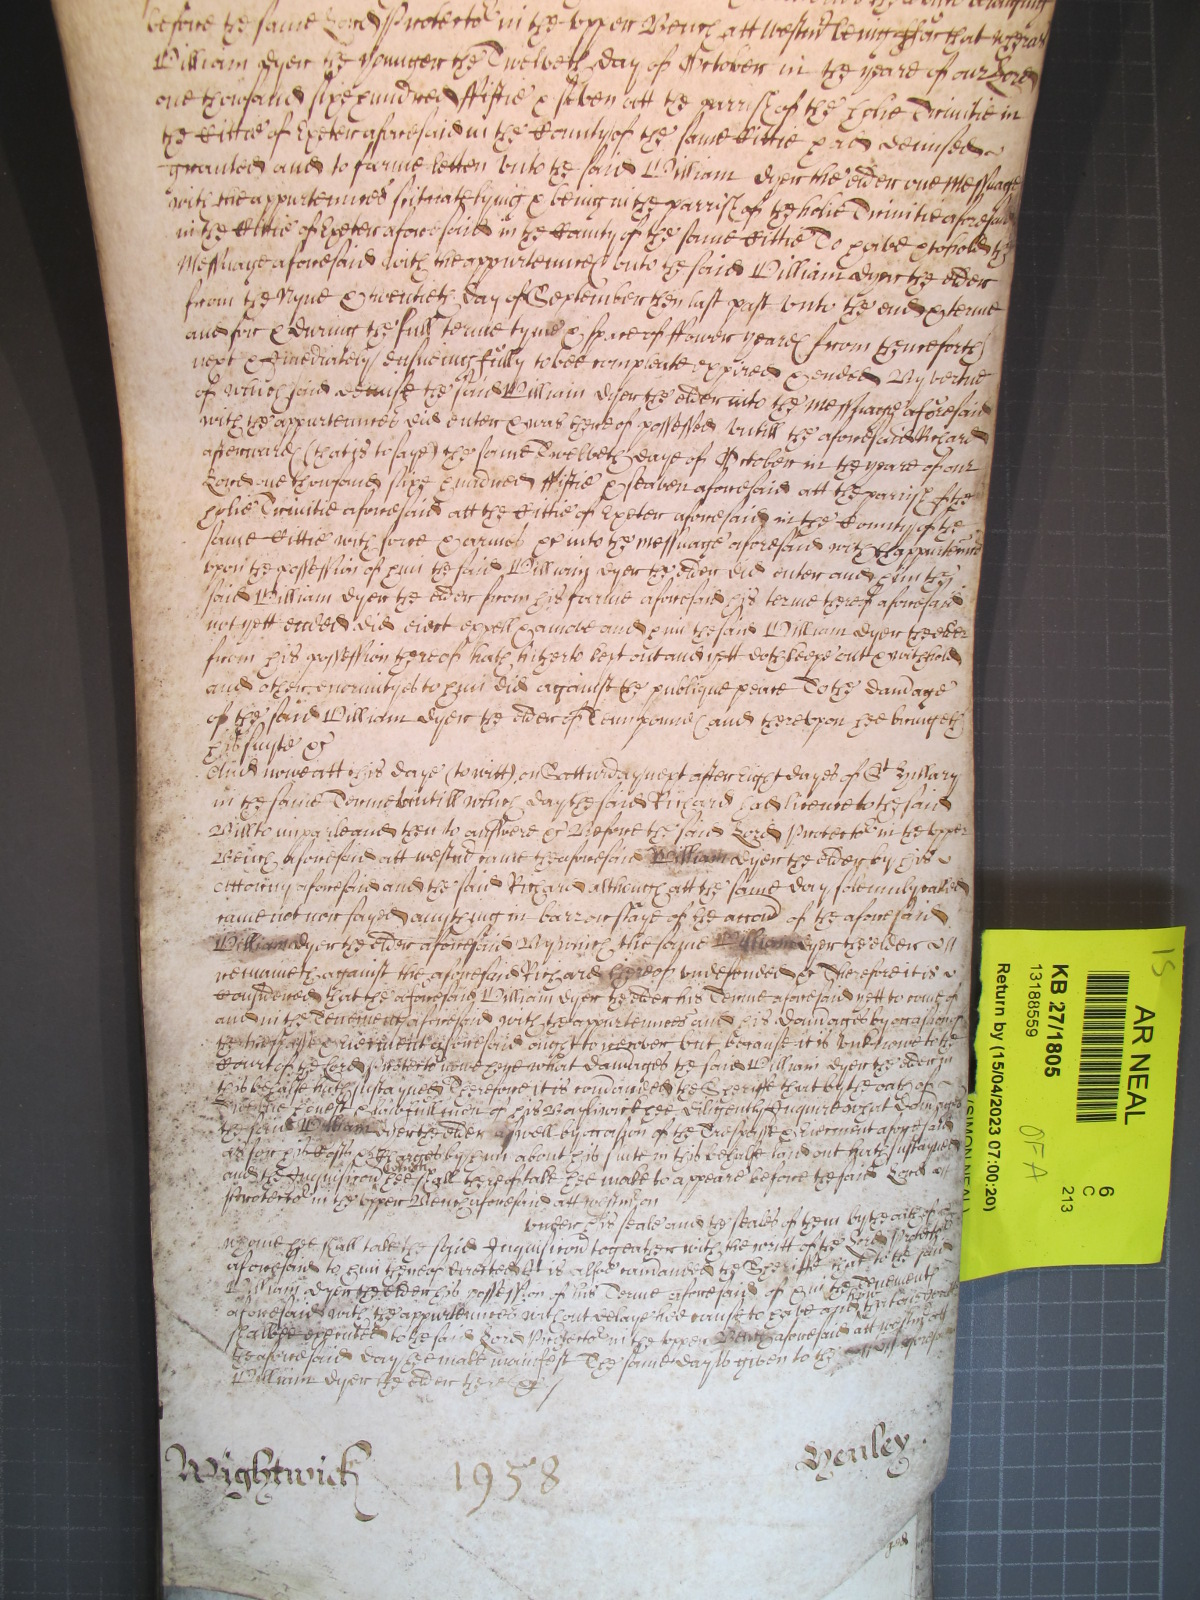 before the same Lord Protector in the upper Bench att Westm̃ being for that whereas
William Dyer the younger the Twelveth day of October in the yeare of our Lord
one thousand sixe hundred Fiftie & seaven att the parrish of the holie Trinitie in
the Cittie of Exeter aforesaid in the County of the same Cittie had demised
graunted and to farme letten unto the said William Dyer the elder one Messuage
with the appurtenñces scituate lying & being in the parrish of the holie Trinitie aforesaid
in the Cittie of Exeter aforesaid in the County of the same Cittie To have & to hold the
Messuage aforesaid with the appurtenñces unto the said William Dyer the elder
from the Nyne & twentieth day of September then last past unto the end & terme
and for & during the full terme tyme & space of Fower yeares from thenceforth
next & ymediately ensueing fully to bee compleate expired & ended By vertue
of which said demise the said William Dyer the elder into the Messuage aforesaid
with the appurtenñces did enter & was thereof possessed untill the aforesaid Richard
afterwards (that is to saye) the same Twelveth daye of October in the yeare of our
Lord one thousand sixe hundred Fiftie & seaven aforesaid att the parrish of the
holie Trinitie aforesaid att the Cittie of Exeter aforesaid in the County of the
same Cittie with force & armes &c into the Messuage aforesaid with thappurtenñces
upon the possession of him the said William Dyer the elder did enter and him the
said William Dyer the elder from his farme aforesaid his terme thereof aforesaid
not yett ended did eject expell & amove and him the said William Dyer the elder
from his possession thereof hath hitherto kept out and yett doth keepe out & withhold
and other enormityes to him did against the publique peace To the damage
of the said William Dyer the elder of Tenn pounds and thereupon hee bringeth
his suyte &c
And nowe att this daye (to witt) on Satturday next after Eight dayes of St Hillary
in the same Terme untill which day the said Richard had licence to the said
Bill to imparle and then to answere &c Before the said Lord Protector in the upper
Bench aforesaid att Westm̃ came the aforesaid William Dyer the elder by his
Attorny aforesaid and the said Richard although att the same day solemnly called
came not nor sayed anything in barr or staye of the accõn of the aforesaid
William Dyer the elder aforesaid By which the same William Dyer the elder
remaineth against the aforesaid Richard thereof undefended &c Therefore it is
Considered that the aforesaid William Dyer the elder his Terme aforesaid yett to come of
and in the Tenement aforesaid with the appurtenñces and his damages by occasion of
the trespasse & ejectment aforesaid ought to recover but because it is unknowne to the
Court of the Lord Protector nowe here what damages the said William Dyer the elder in
this behalfe hath sustayned Therefore it is comanded the Sheriffe that by the oath of
Twelve honest & lawfull men of his Baylywick hee diligently Inquire what damages
the said William Dyer the elder aswell by occasion of the Trespasse & ejectment aforesaid
as for his Costs & Charges by him about his suite in this behalfe laid out hath sustayned
and the Inquisicõn hee shall thereof take hee make to appeare before the said Lord
Protector in the upper Bench aforesaid att Westm̃ on
under his seale and the seales of them by the oath of
whome hee shall take the said Inquisicõn togeather with the writt of the Lord Protector
aforesaid to him thereof directed It is alsoe comanded the Sheriffe that to the said
William Dyer the elder his possession of his Terme aforesaid of & in the Tenement
aforesaid with the appurtenñces without delaye hee cause to have and howe
shalbee executed to the said Lord Protector in the upper Bench aforesaid att Westm̃ att
the aforesaid day hee make manifest The same day is given to the aforesaid
William Dyer the elder there &c
Wightwick 1958 Henley
AR NEAL
6
C
213
KB 27/1805
13188559
Return by (15/04/2023 07:00:20)
(SIMON NEAL)
15
OFA